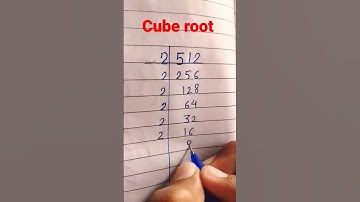 Cube root
2 512
2 256
2 128
2 64
2 32
2 16
8